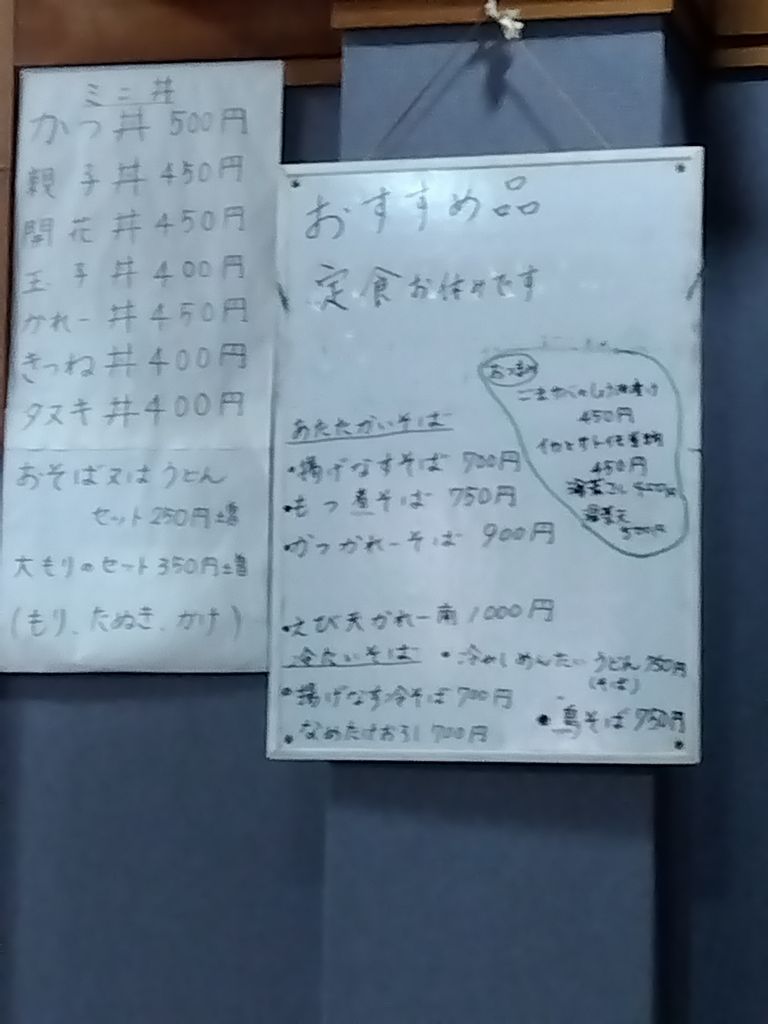 ミニ丼
かつ丼 500円
親子丼 450円
開花丼 450円
玉子丼 400円
かれー丼 450円
きつね丼 400円
タヌキ丼 400円
おそば又はうどん
セット 250円増
大もりのセット 350円増
(もり、たぬき、かけ)
おすすめ品
定食お休みです
おつまみ
450円
450円
あたたかいそば
・揚げなすそば 700円
・もつ煮そば 750円
・かつかれーそば 900円
・えび天かれー南 1000円
冷たいそば
・冷やしめんたいうどん 750円
(そば)
・揚げなす冷そば 700円
・鳥そば 750円
・なめたけおろし 700円